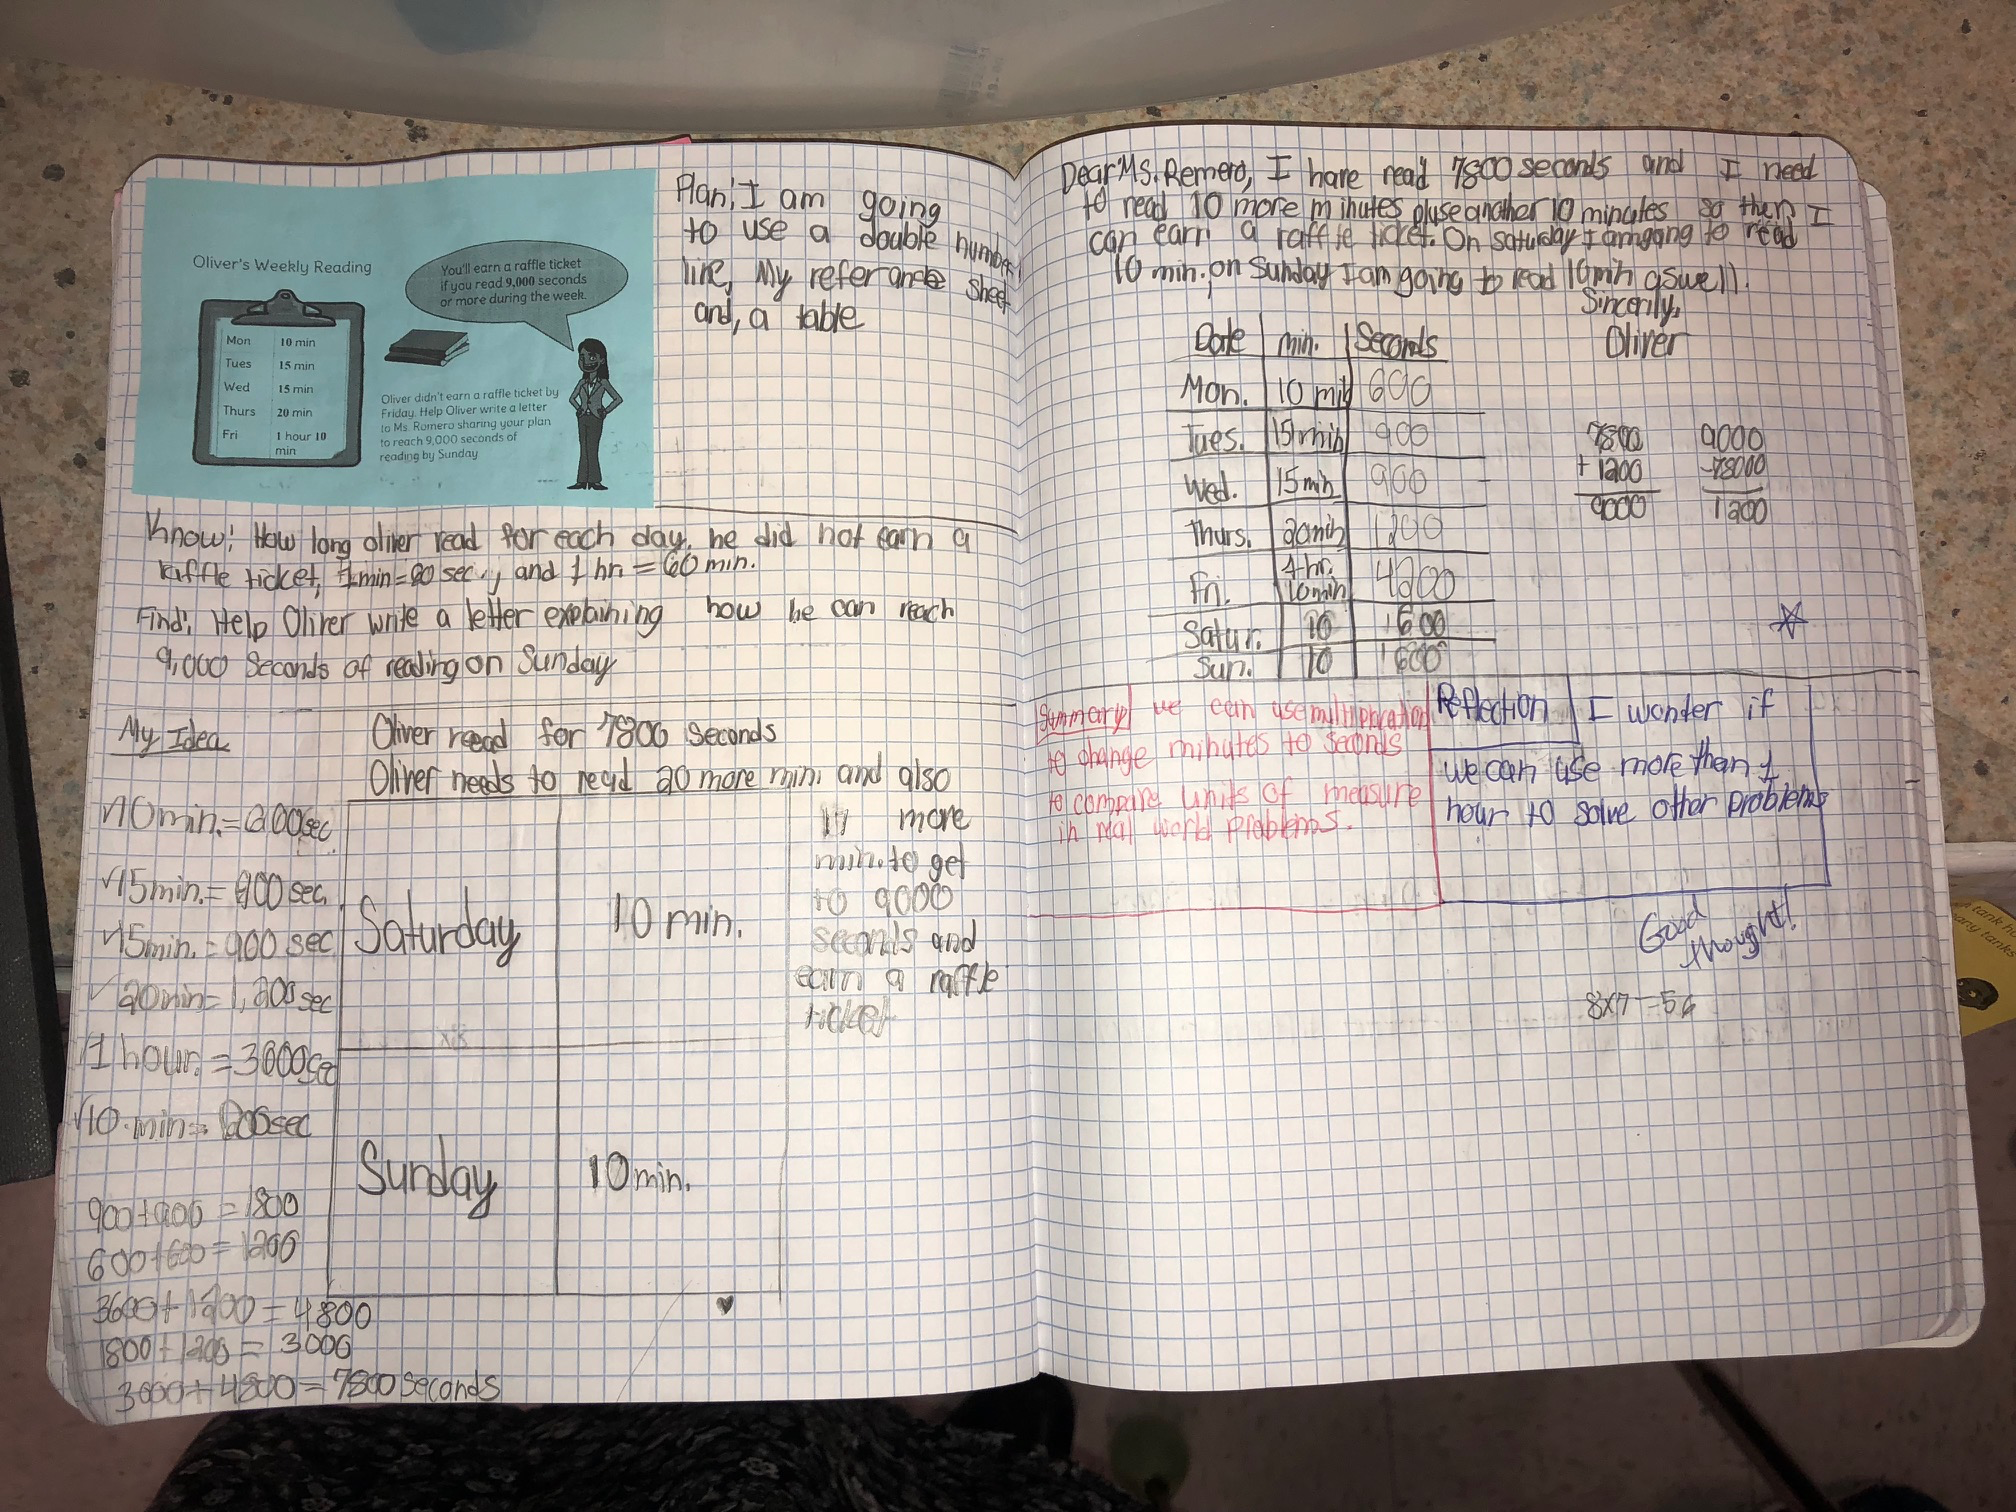 Oliver's Weekly Reading
Mon 10 min
Tues 15 min
Wed 15 min
Thurs 20 min
Fri 1 hour 10
min
You'll earn a raffle ticket
if you read 9,000 seconds
or more during the week.
Oliver didn't earn a raffle ticket by
Friday. Help Oliver write a letter
to Ms. Romero sharing your plan
to reach 9,000 seconds of
reading by Sunday
Plan: I am going
to use a double number
line, My referance sheet
and, a table
Know: How long oliver read for each day, he did not earn a
raffle ticket, 1 min = 60 sec., and 1 hr. = 60 min.
Find: Help Oliver write a letter explaining how he can reach
9,000 Seconds of reading on Sunday
My Idea
Oliver reead for 7800 seconds
Oliver needs to read 20 more min. and also
11 more
min. to get
to 9000
seconds and
earn a raffle
ticket
10 min. = 600 sec
15 min. = 900 sec.
15 min. = 900 sec
20 min = 1,200 sec
1 hour. = 3600 sec
10. min = 600 sec
Saturday 10 min.
Sunday 10 min.
900+900 = 1800
600+600 = 1200
3600+1200 = 4800
1800+1200 = 3000
3000+4800 = 7800 seconds
Dear Ms. Remero, I have read 7800 seconds and I need
to read 10 more minutes pluse another 10 minutes so then I
can earn a raffle ticket. On saturday I am gang to read
10 min., on Sunday I am going to read 10 min aswell.
Sincerily,
Oliver
Date min. Seconds
Mon. 10 min 600
Tues. 15 min 900
Wed. 15 min 900
Thurs. 20 min 1200
Fri. 1 hr. 10 min 4200
Satur. 10 600
Sun. 10 600
7800
+1200
9000
9000
-78000
1200
Summary we can use multiplication
to change minutes to seconds
to compare units of measure
in real world problems.
Reflection I wonter if
we can use more than 1
hour to solve other problems
Good
thought!
8x7=56